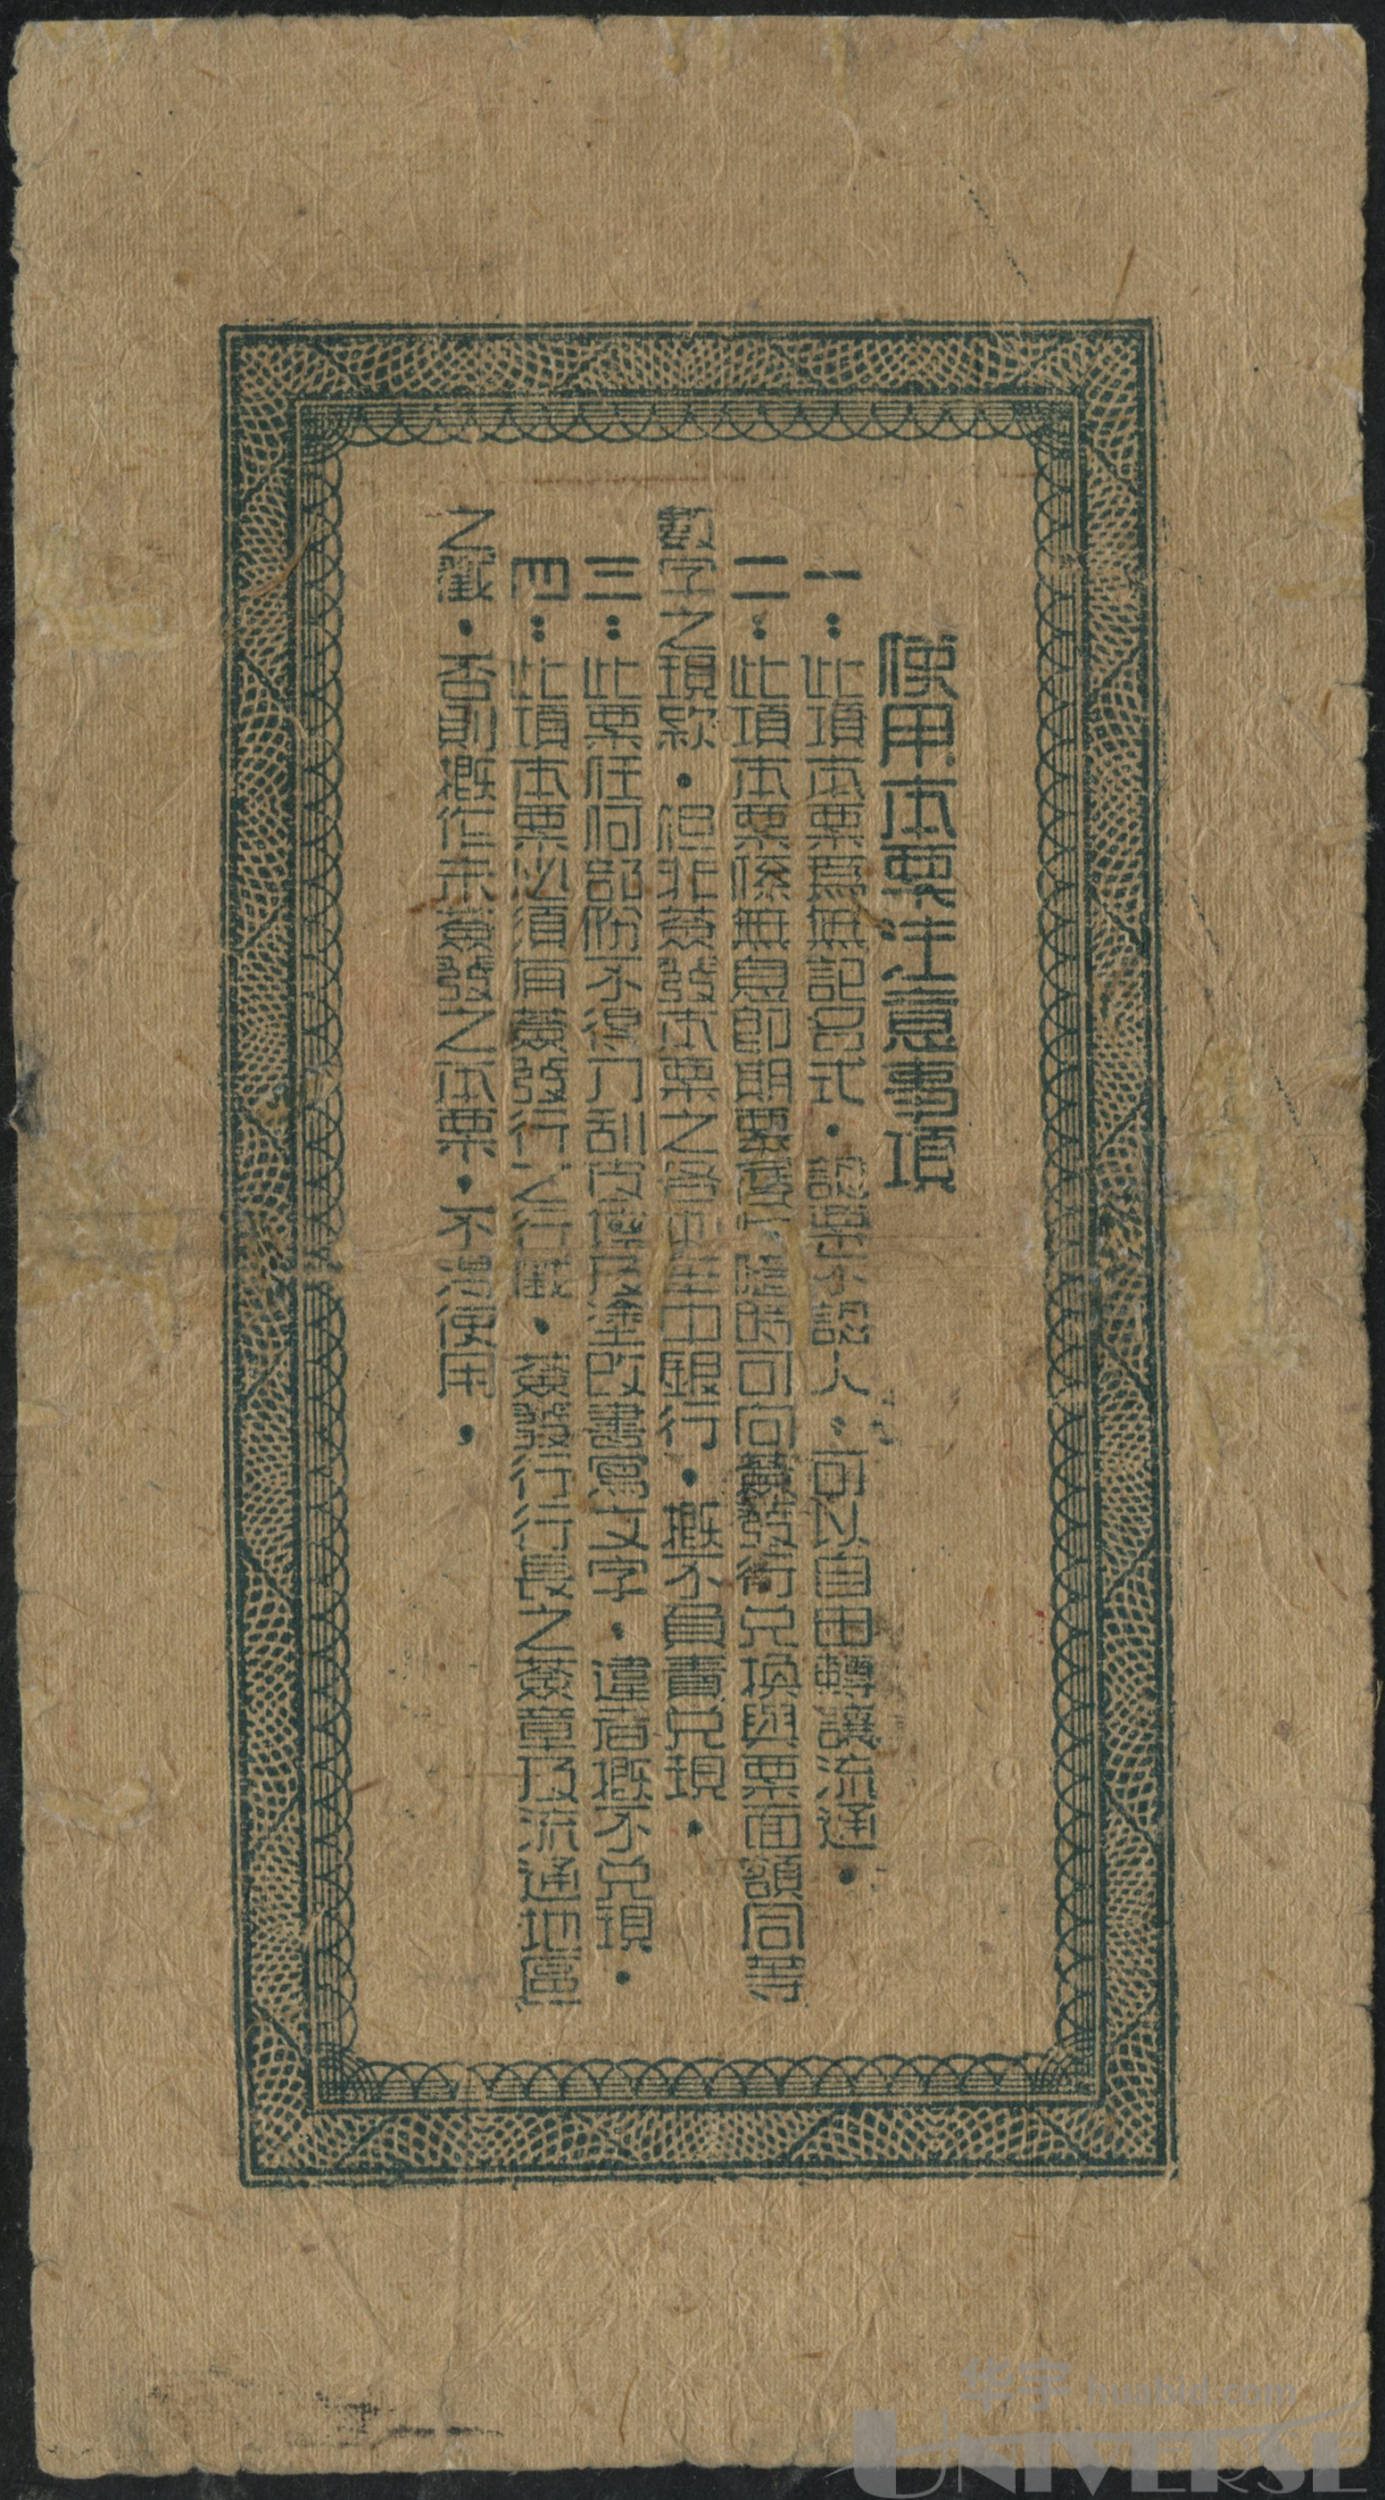 使用本票注意事項
一：此項本票爲無記名式．認票不認人：可以自由轉讓流通．
二：此項本票係無息即期票，隨時可向簽發行兌換與票面額同等
數字之現款．但非簽發本票之各北海銀行．概不負責兌現．
三：此票任何部份不得刀刮皮擦及塗改書寫文字．違者概不兌現．
四：此項本票必須有簽發行之行戳．簽發行行長之簽章及流通地區
之戳．否則概作未簽發之本票，不得使用，
华宇 huabid.com
UNIVERSE